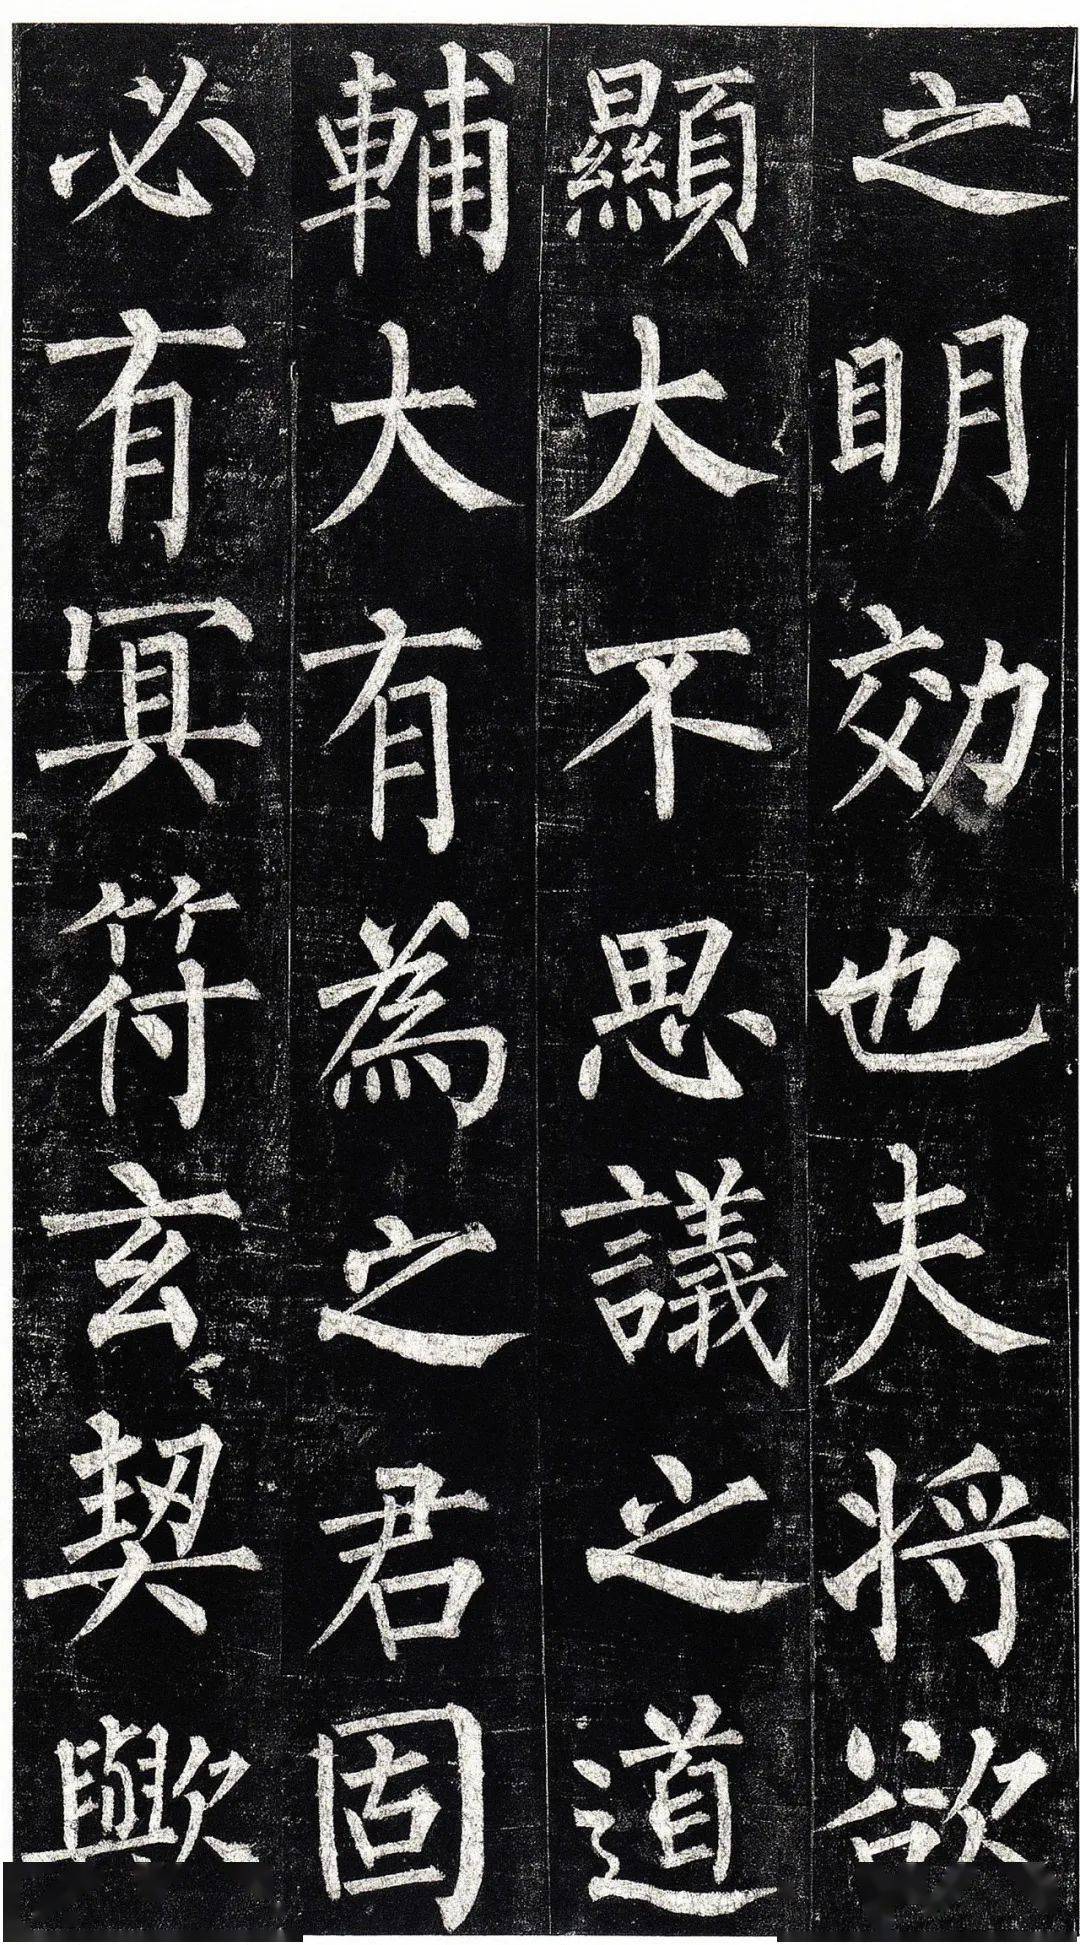 之明效也夫将欲
顯大不思議之道
輔大有為之君固
必有冥符玄契歟